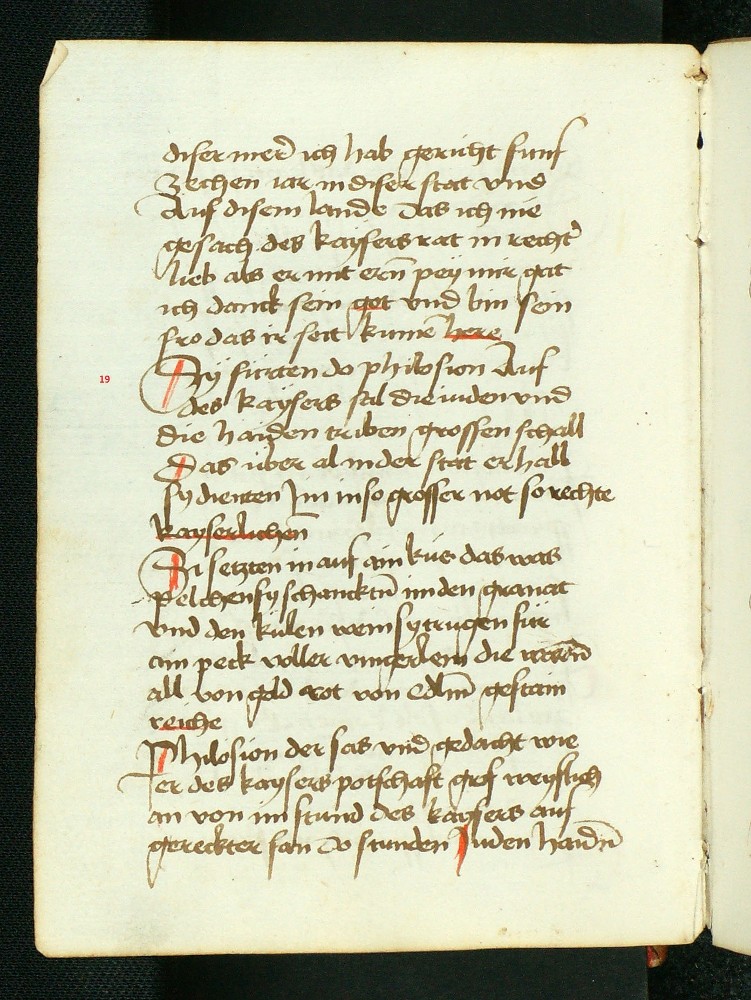 diser mer̄ ich hab gericht funf
zechen iar in diser stat vnd
Auf disem lande Das ich nie
gesach des kaysers rat in recht̄
lieb als er mit ern̄ pey mir gat
ich danck sein got vnd bin sein
fro das ir seit kumē here
19
Sy furten do philosion Auf
des kaysers sal die iuden vnd
die haiden triben grossen schall
Das uber al in der stat erhall
sy dienten Im in so grosser not so rechte
kayserlichen̄
Si setzten in auf ain küs das was
pelchen sy schancktn̄ im den granat
vnd den kulen wein sy trugen für
ain peck voller vingerlein die warn̄
all von gold rot von Edlm̄ gestain
reiche
Philosion der sas vnd gedacht wie
er des kaysers potschaft grif weyslich
an von im stund des kaysers auf
gereckter fan Do stunden Juden haidn̄